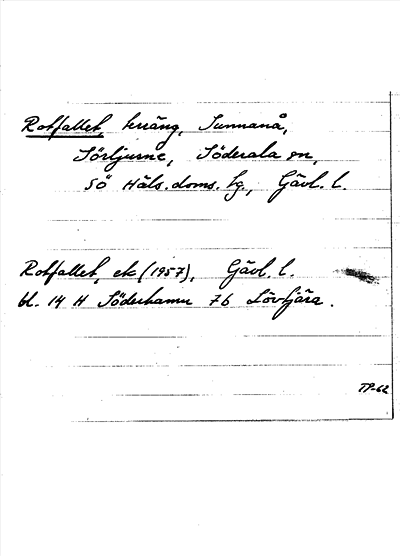 Rotfallet, terräng, Sunnanå,
Sörljusne, Söderala sn,
SÖ Häls. doms. tg., Gävl. l.
Rotfallet, ek (1957), Gävl. l.
bl. 14 H Söderhamn 7b Lövtjära.
TP-62